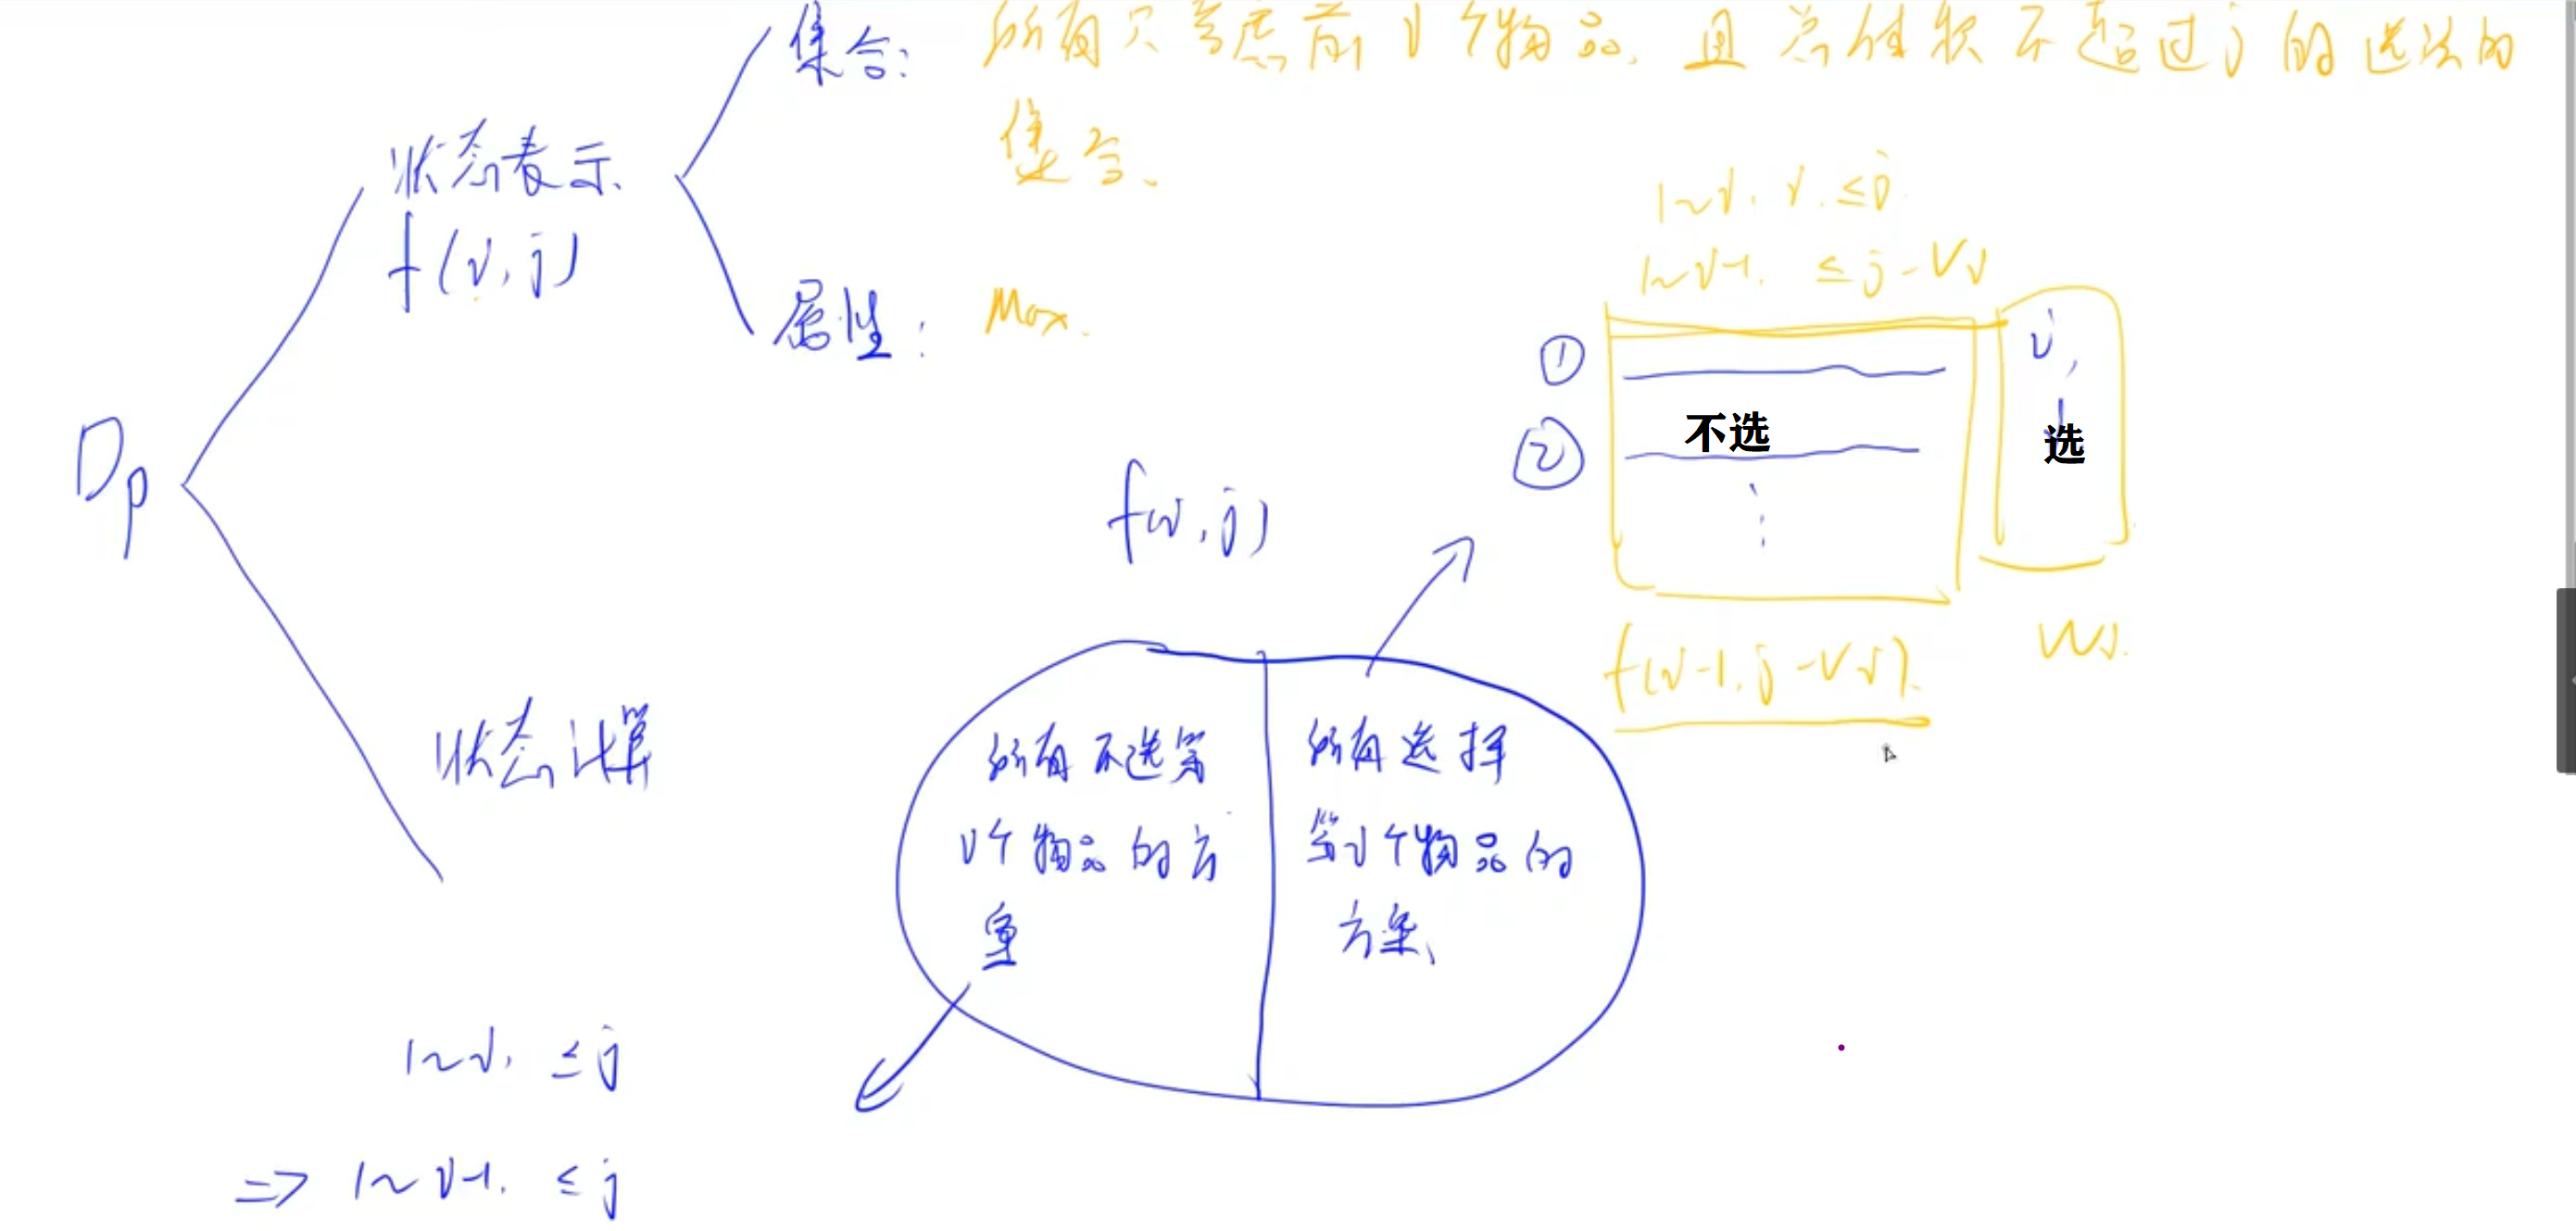 集合: 所有只考虑前i个物品、且总体积不超过j的选法的
集合、
状态表示、
f(i, j)
属性: Max.
1~i, ≤j
1~i-1, ≤j-Vi
①
②
不选
i,
选
f(i-1, j-Vi).
Wi.
Dp
f(i, j)
状态计算
所有不选第
i个物品的方
案
所有选择
第i个物品的
方案、
1~i, ≤j
=> 1~i-1, ≤j